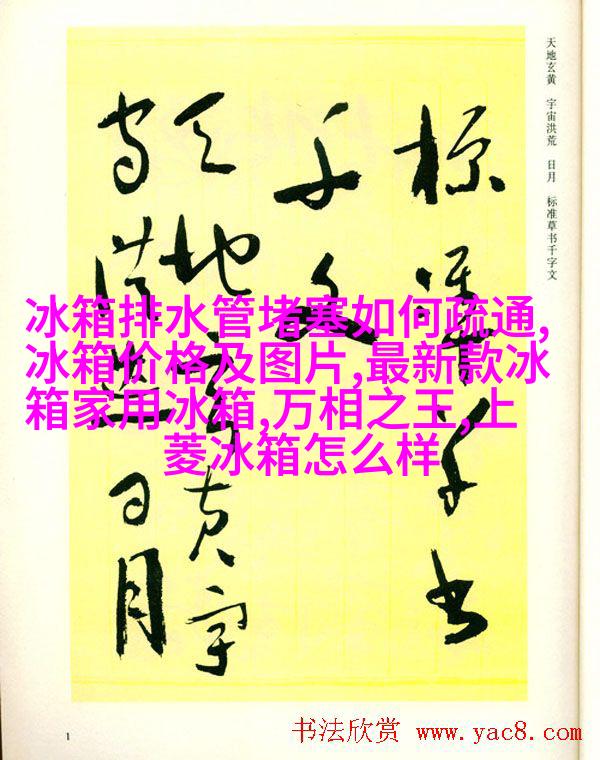 天地玄黄 宇宙洪荒 日月 标准草书千字文
標準草書
千文
天地玄黄宇
宙洪荒日月
冰箱排水管堵塞如何疏通,
冰箱价格及图片,最新款冰
箱家用冰箱,万相之王,上
菱冰箱怎么样
1
书法欣赏 www.yac8.com